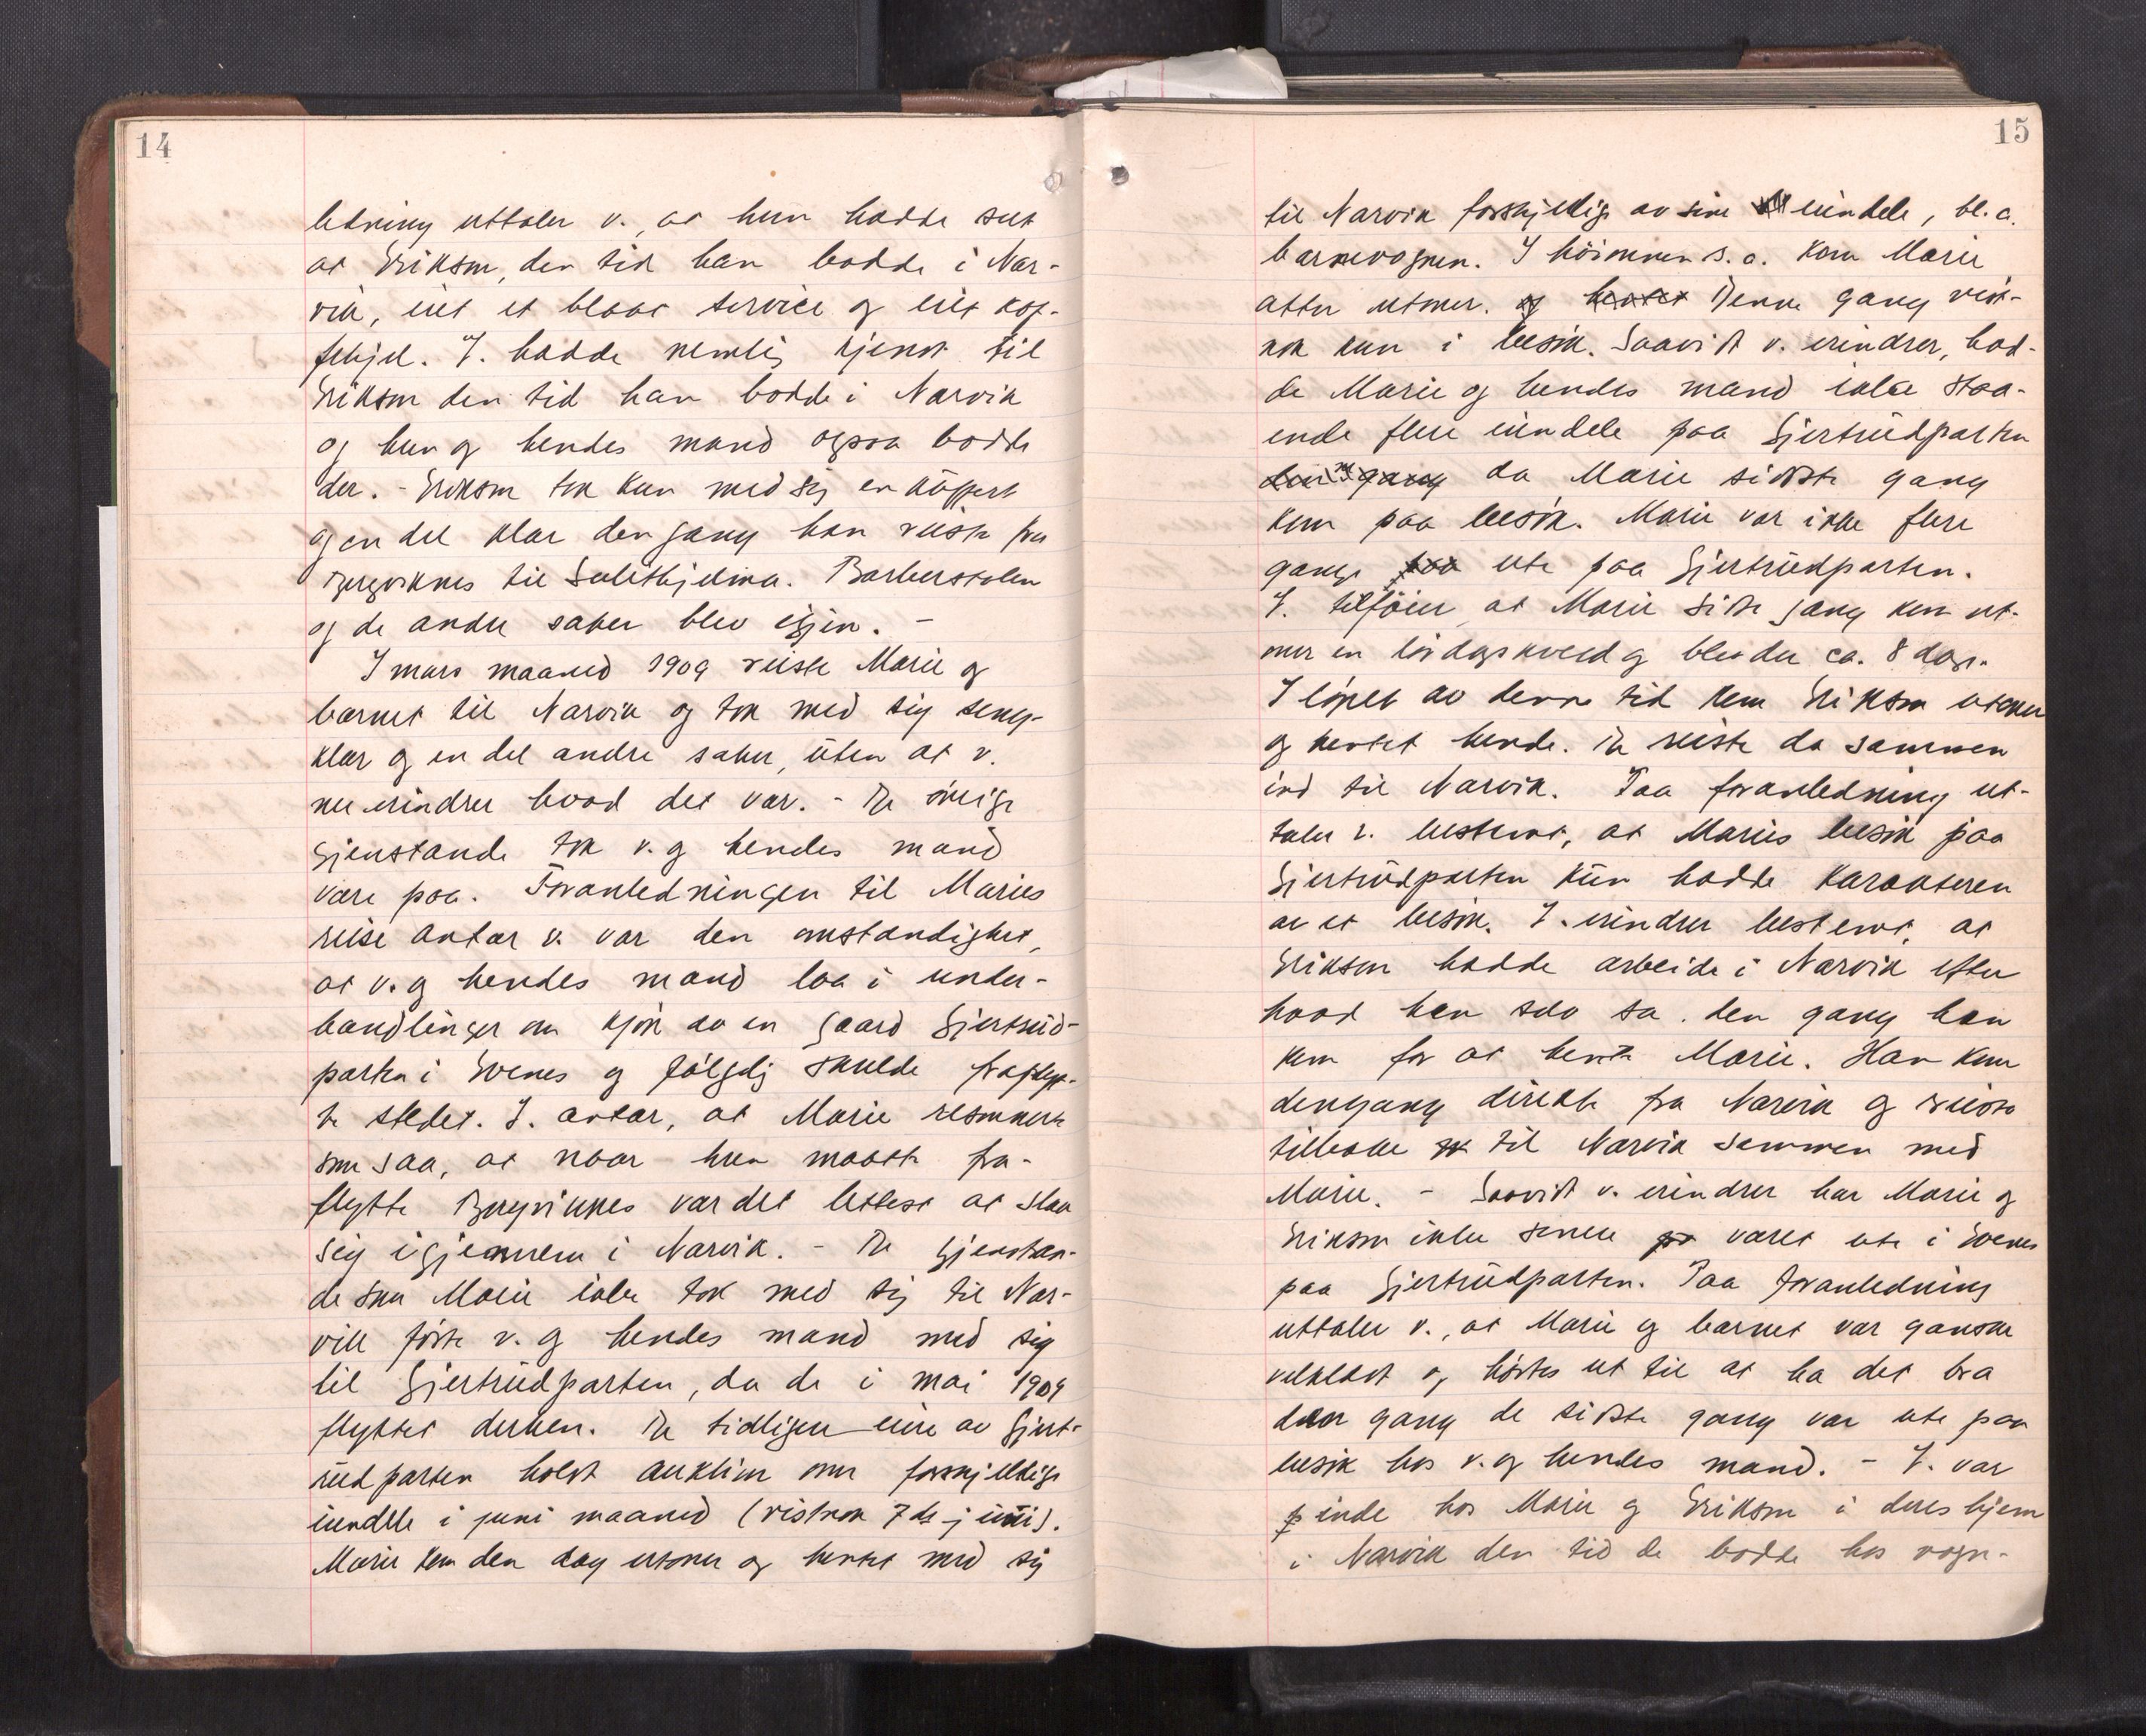 14
ledning uttaler v., at hun hadde set
at Eriksen, den tid han bodde i Nar-
vik, eiet et blaat service og eiet kof-
fehjel. V. hadde nemlig kjendt til
Eriksen den tid han bodde i Narvik
og hun og hendes mand ogsaa bodde
der. - Eriksen tok kun med sig en kuffert
og en del klær den gang han reiste fra
Bergviknes til Sulithjelma. Barberstolen
og de andre saker blev igjen. -
I mars maaned 1909 reiste Marie og
barnet til Narvik og tok med sig seng-
klær og en del andre saker, uten at v.
nu erindrer hvad det var. - De øvrige
gjenstande tok v. og hendes mand
vare paa. Foranledningen til Maries
reise antar v. var den omstændighet,
at v. og hendes mand laa i under-
handlinger om kjøp av en gaard Gjertrud-
parten i Evenes og følgelig skulde fraflyt-
te stedet. V. antar, at Marie resonnerte
som saa, at naar hun maatte fra-
flytte Bergviknes var det lettest at slaa
sig igjennem i Narvik. - De gjenstan-
de som Marie ikke tok med sig til Nar-
vik førte v. og hendes mand med sig
til Gjertrudparten, da de i mai 1909
flyttet derhen. De tidligere eiere av Gjert-
rudparten holdt auktion over forskjellige
eiendele i juni maaned (vistnok 7de juni).
Marie kom den dag utover og hentet med sig
15
til Narvik forskjellige av sine eiendele, bl.a.
barnevognen. I høionnen s.a. kom Marie
atter utover. og hentet Denne gang vist-
nok kun i besøk. Saavidt v. erindrer, had-
de Marie og hendes mand ikke staa-
ende flere eiendele paa Gjertrudparten
den gang da Marie sidste gang
kom paa besøk. Marie var ikke flere
gange paa ute paa Gjertrudparten.
V. tilføier, at Marie siste gang kom ut-
over en lørdagskveld og blev der ca. 8 dage.
I løpet av denne tid kom Eriksen utover
og hentet hende. De reiste da sammen
ind til Narvik. Paa foranledning ut-
taler v. bestemt, at Maries besøk paa
Gjertrudparten kun hadde karakteren
av et besøk. V. erindrer bestemt, at
Eriksen hadde arbeide i Narvik efter
hvad han selv sa, den gang han
kom for at hente Marie. Han kom
dengang direkte fra Narvik og reiste
tilbake til Narvik sammen med
Marie. - Saavidt v. erindrer har Marie og
Eriksen ikke senere pa været ute i Evenes
paa Gjertrudparten. Paa foranledning
uttaler v., at Marie og barnet var ganske
velklædt og hørtes ut til at ha det bra
den gang de sidste gang var ute paa
besøk hos v. og hendes mand. - V. var
inde hos Marie og Eriksen i deres hjem
i Narvik den tid de bodde hos vogn-